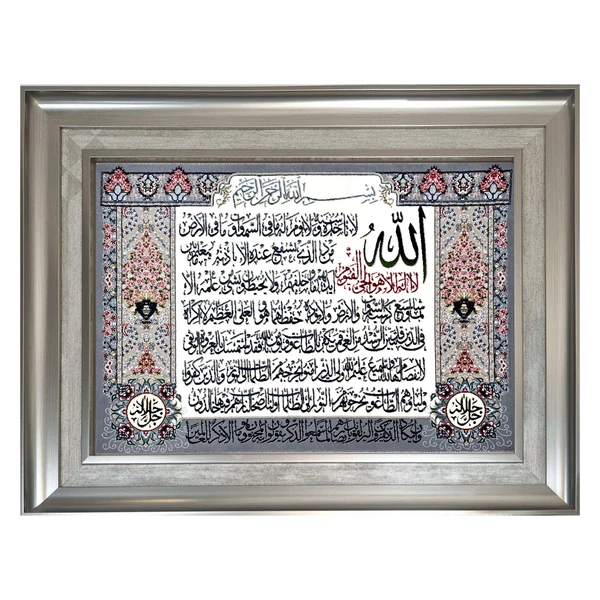 بسم الله الرحمن الرحيم
الله
لا اله الا هو الحي القيوم
لا تاخذه سنة ولا نوم له ما في السموات وما في الارض
من ذا الذي يشفع عنده الا باذنه يعلم ما بين
ايديهم وما خلفهم ولا يحيطون بشيء من علمه الا
بما شاء وسع كرسيه السموات والارض ولا يوده حفظهما وهو العلي العظيم لا اكراه
في الدين قد تبين الرشد من الغي فمن يكفر بالطاغوت ويومن بالله فقد استمسك بالعروة الوثقى
لا انفصام لها والله سميع عليم الله ولي الذين امنوا يخرجهم من الظلمات الى النور والذين كفروا
اولياوهم الطاغوت يخرجونهم من النور الى الظلمات اولئك اصحاب النار هم فيها خالدون
وان يكاد الذين كفروا ليزلقونك بابصارهم لما سمعوا الذكر ويقولون انه لمجنون وما هو الا ذكر للعالمين
جل جلاله
جل جلاله